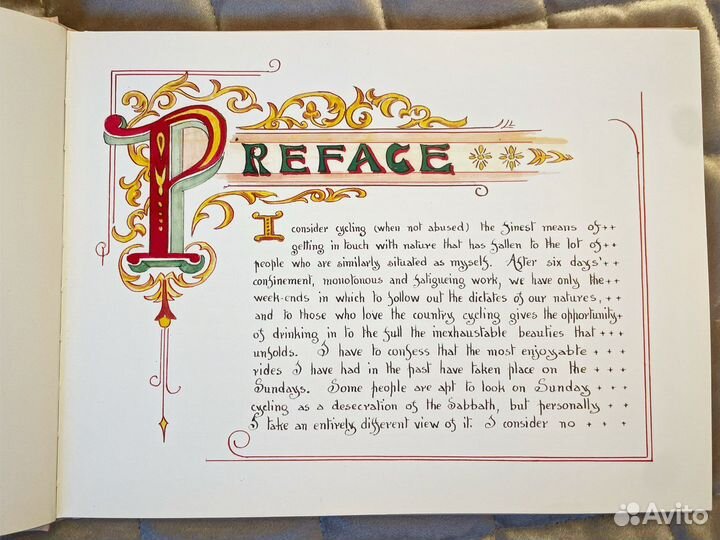 PREFACE
I consider cycling (when not abused) the finest means of++
getting in touch with nature that has fallen to the lot of++
people who are similarly situated as myself. After six days' ++
confinement, monotonous and fatigueing work, we have only the++
week-ends in which to follow out the dictates of our natures, ++
and to those who love the country cycling gives the opportunity+
of drinking in to the full the inexhaustable beauties that +++
unfolds. I have to confess that the most enjoyable +++
rides I have had in the past have taken place on the +++
Sundays. Some people are apt to look on Sunday +++
cycling as a desecration of the Sabbath, but personally ++
I take an entirely different view of it. I consider no +++
Avito